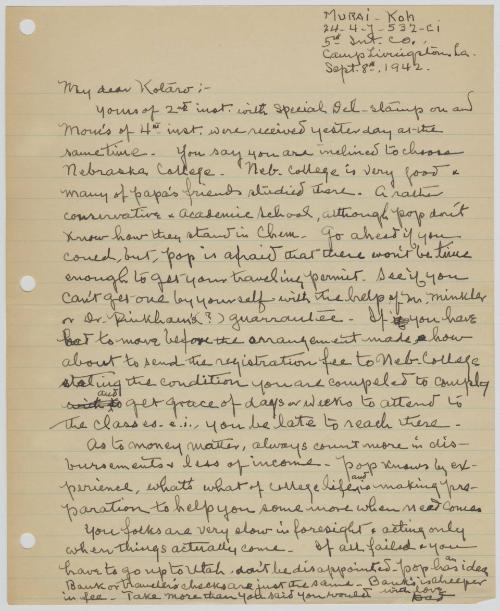 MURAI - Koh
24-4-7-532-Ci
5th Int. Co.,
Camp Livingston, La.
Sept. 8th, 1942.
My dear Kotaro :-
Yours of 2nd inst. with Special Del- stamp on and
Mom's of 4th inst. were received yesterday at the
same time. You say you are inclined to choose
Nebraska College. Neb. College is very good &
many of papa's friends studied there. A rather
conservative & academic school, although pop don't
know how they stand in Chem. Go ahead if you
coued, but, pop is afraid that there won't be time
enough to get your traveling permit. See if you
can't get one by yourself with the help of Mr. Minkler
or Dr. Pinkham's (?) guarrantee. If you have
to move before the arrangement made how
about to send the registration fee to Neb. College
stating the condition you are compeled to comply
and get grace of days or weeks to attend to
the classes. e.i., you be late to reach there.
As to money matter, always count more in dis-
bursements & less of income. Pop knows by ex-
perience, what's what of college life, and is making pre-
paration to help you some more when need comes
You folks are very slow in foresight & acting only
when things actually come. If all failed & you
have to go up to Utah don't be disappointed. Pop has an idea
Bank or traveler's checks are just the same - Bank's is cheeper
in fee. Take more than you said you would with love
Dad